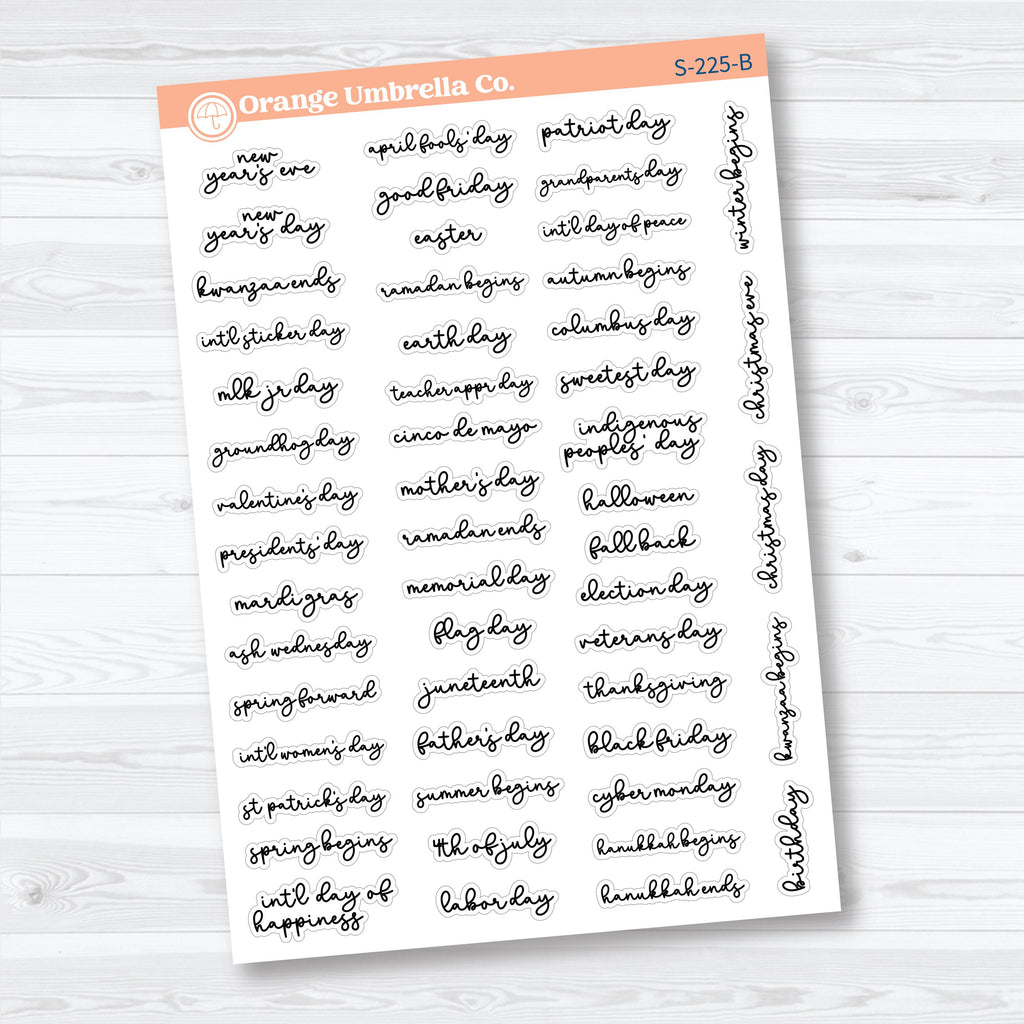 Orange Umbrella Co.
S-225-B
new
year's eve
new
year's day
kwanzaa ends
int'l sticker day
mlk jr day
groundhog day
valentine's day
presidents' day
mardi gras
ash wednesday
spring forward
int'l women's day
st patrick's day
spring begins
int'l day of
happiness
april fools' day
good friday
easter
ramadan begins
earth day
teacher appr day
cinco de mayo
mother's day
ramadan ends
memorial day
flag day
juneteenth
father's day
summer begins
4th of july
labor day
patriot day
grandparents day
int'l day of peace
autumn begins
columbus day
sweetest day
indigenous
peoples' day
halloween
fall back
election day
veterans day
thanksgiving
black friday
cyber monday
hanukkah begins
hanukkah ends
winter begins
christmas eve
christmas day
kwanzaa begins
birthday